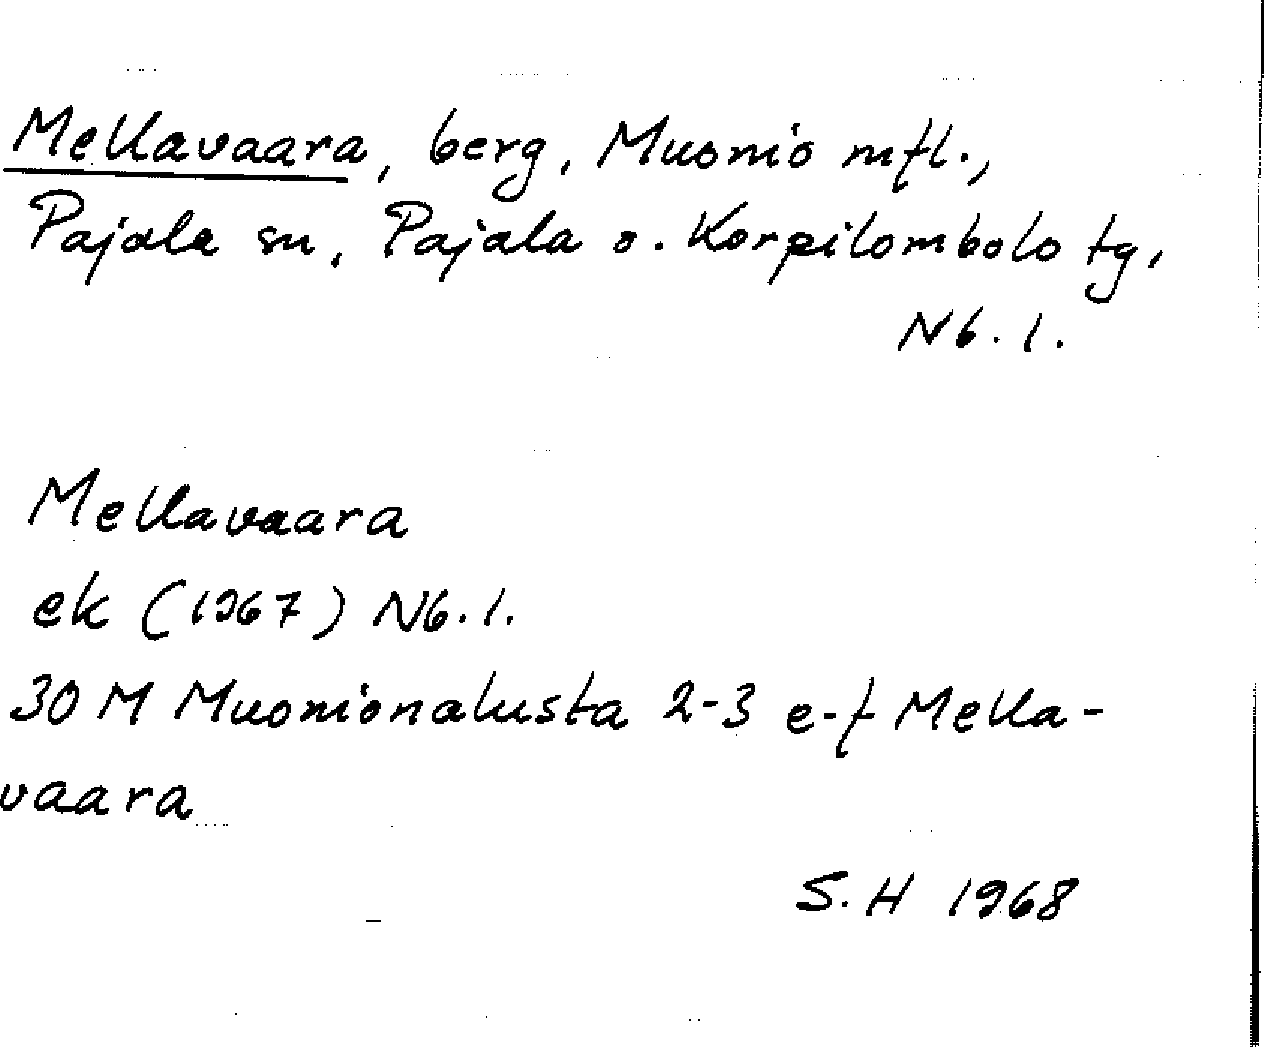 Mellavaara, berg, Muonio mfl.,
Pajala sn, Pajala o. Korpilombolo tg,
Nb. l.
Mellavaara
ek (1967) Nb. l.
30 M Muonionalusta 2-3 e-f Mella-
vaara
S. H 1968